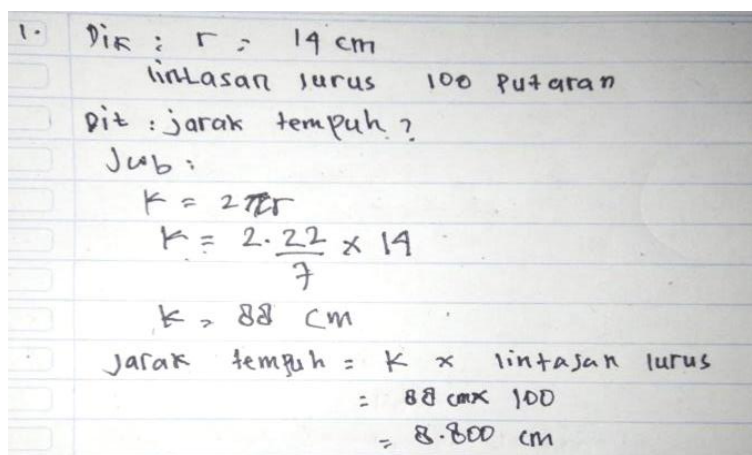 1. Dik : r = 14 cm
lintasan lurus 100 Putaran
Dit : jarak tempuh ?
Jwb :
K = 2πr
K = 2. 22/7 x 14
K = 88 cm
Jarak tempuh = K x lintasan lurus
= 88 cm x 100
= 8.800 cm